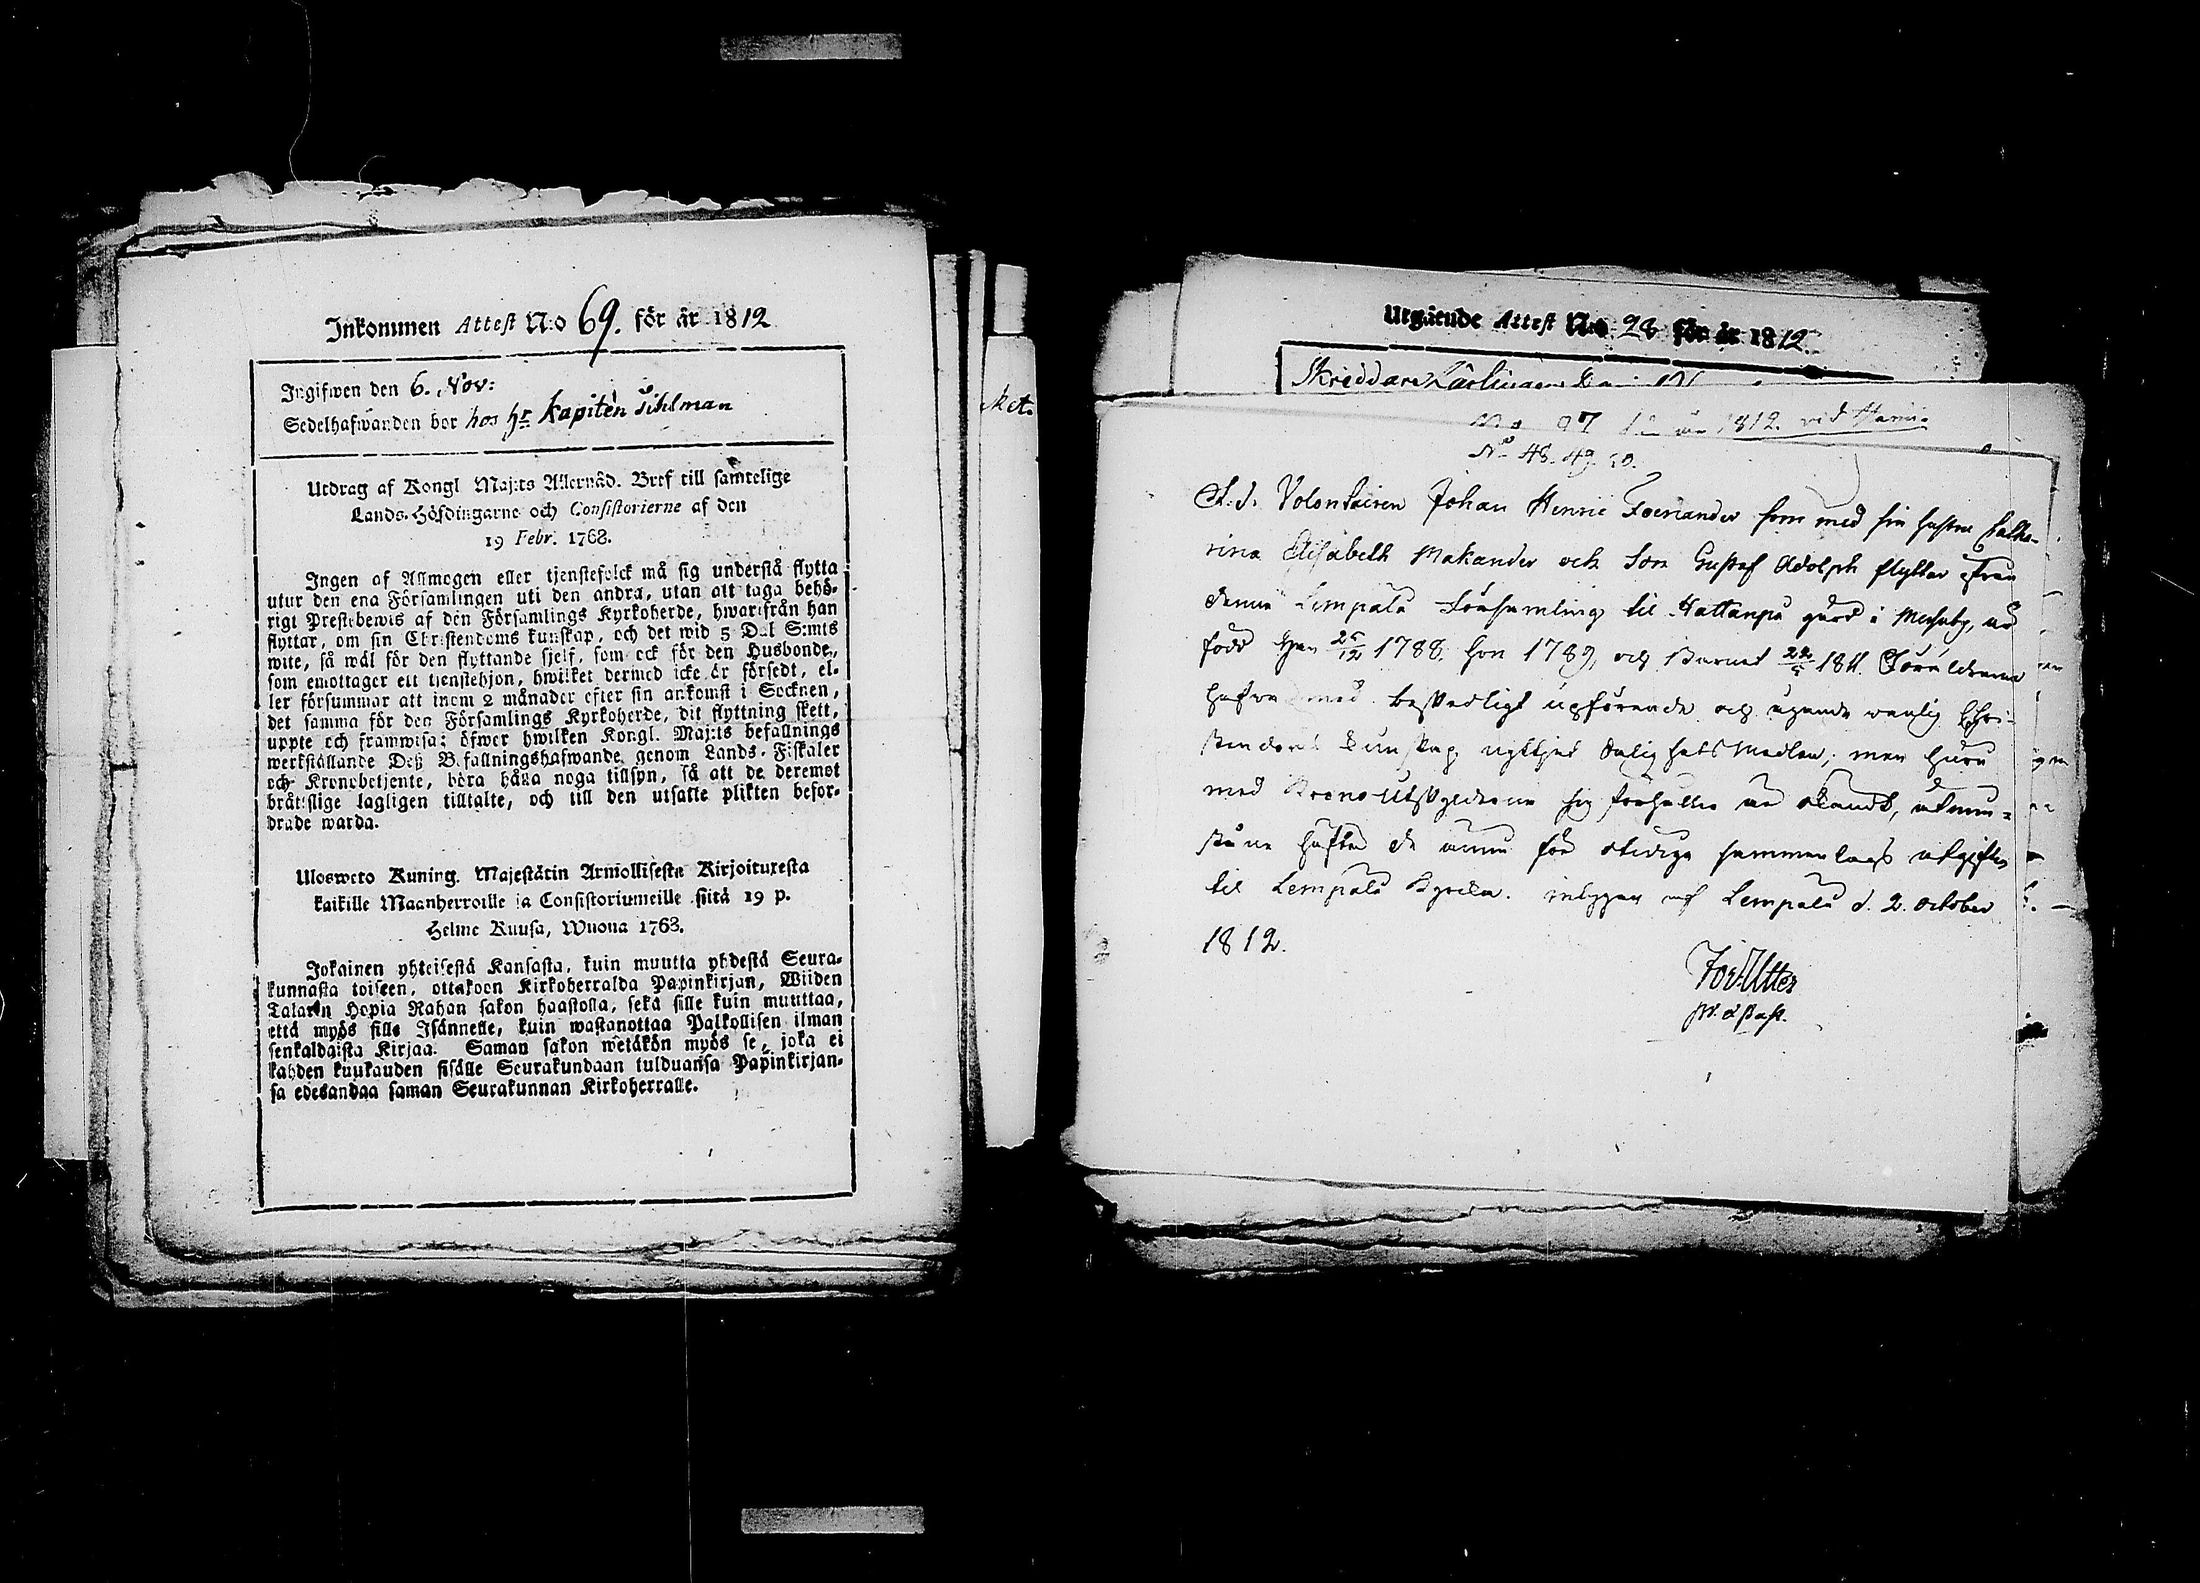 Inkommen Attest N:o 69. för år 1812
Ingifwen den 6. Nov:
Sedelhafwanden bor hos hr kapiten Tihlman
Utdrag af Kongl Maj:ts Allernåd. Bref till samtelige
Lands-Höfdingarne och Consistorierne af den
19 Febr. 1768.
Ingen af Allmogen eller tjenstefolck må sig understå flytta
utur den ena Församlingen uti den andra, utan att taga behö-
rigt Prestebewis af den Församlings Kyrkoherde, hwarifrån han
flyttar, om sin Christendoms kunskap, och det wid 5 Dal S:mts
wite, så wäl för den flyttande sjelf, som ock för den Husbonde,
som emottager ett tjenstehjon, hwilket dermed icke är försedt, el-
ler försummar att inom 2 månader efter sin ankomst i Socknen,
det samma för den Församlings Kyrkoherde, dit flyttning skett,
uppte och framwisa; öfwer hwilken Kongl. Maj:ts befallnings
werkställande Deß Befallningshafwande genom Lands-Fiskaler
och Kronobetjente, böra hålla noga tillsyn, så att de deremot
bråttslige lagligen tilltalte, och till den utsatte plikten befor-
drade warda.
Ulosweto Kuning. Majestätin Armollisesta Kirjoituxesta
kaikille Maanherroille ja Consistoriumeille siitä 19 p.
Helme Kuusa, Wuona 1768.
Jokainen yhteisestä Kansasta, kuin muutta yhdestä Seura-
kunnasta toiseen, ottakoon Kirkoherralda Papinkirjan, Wiiden
Talarin Hopia Rahan sakon haastolla, sekä sille kuin muuttaa,
että myös sille Isännelle, kuin wastanottaa Palkollisen ilman
senkaldaista Kirjaa. Saman sakon wetäkön myös se, joka ei
kahden kuukauden sisälle Seurakundaan tulduansa Papinkirjan-
sa edesandaa saman Seurakunnan Kirkoherralle.
Utgående Attest N:o 28 för år 1812
Skreddare
No 97 för år 1812. vid
No 48. 49. 50.
Volontairen Johan Henric Foenander som med sin hustru Catha-
rina Elisabeth Makander och Son Gustaf Adolph flyttar ifrån
denna Lempälä Församling til Hattanpä gård i Messuby, är
född han 25/12 1788. hon 1789, och Barnet 1811. Föräldrarna
hafwa med beskedligt upförande och ägande wanlig Chri-
stendoms kunskap nyttjat Salighets Medlen; men huru
med Krono Utskylderne sig förhåller är okändt,
til Lempälä Kyrka. af Lempälä d. 2. October
1812.